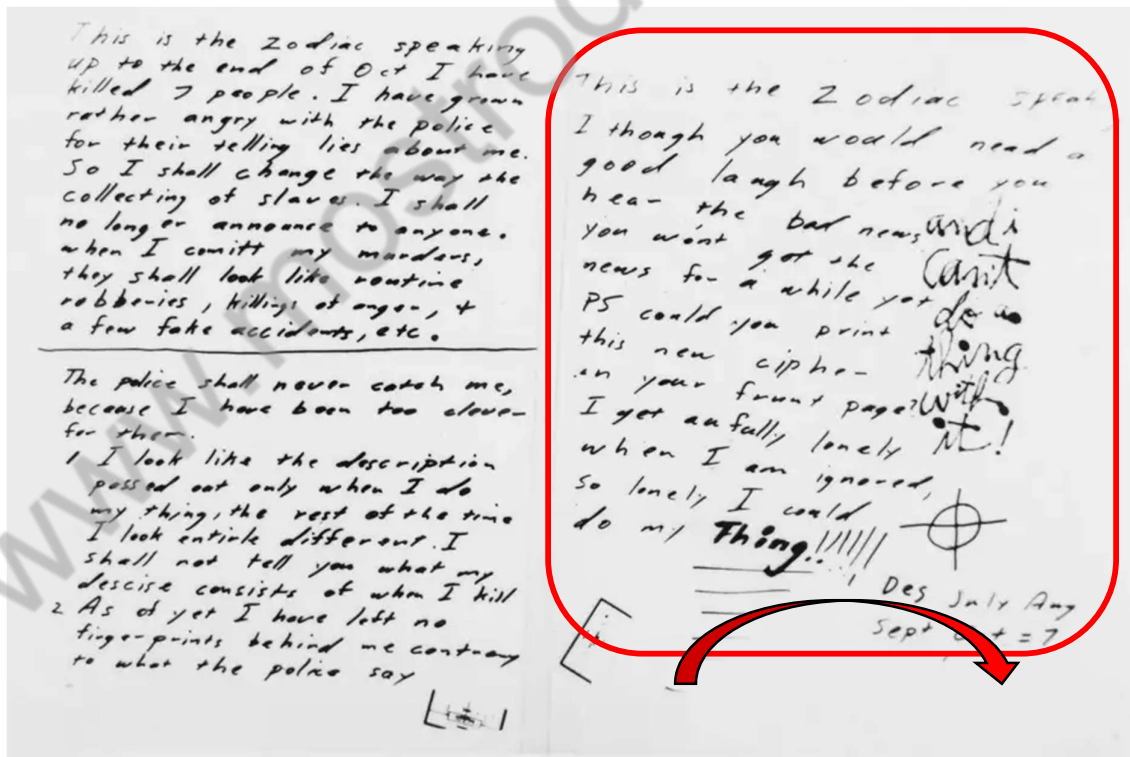 This is the Zodiac speaking
up to the end of Oct I have
killed 7 people. I have grown
rather angry with the police
for their telling lies about me.
So I shall change the way the
collecting of slaves. I shall
no longer announce to anyone.
when I comitt my murders,
they shall look like routine
robberies, killings of anger, +
a few fake accidents, etc.
The police shall never catch me,
because I have been too clever
for them.
1 I look like the description
passed out only when I do
my thing, the rest of the time
I look entirle different. I
shall not tell you what my
descise consists of when I kill
2 As of yet I have left no
fingerprints behind me contrary
to what the police say
This is the Zodiac speak
I though you would need a
good laugh before you
hear the bad news
you won't get the
news for a while yet
PS could you print
this new cipher
in your frunt page?
I get aufully lonely
when I am ignored,
so lonely I could
do my Thing..!!!!!!
and i
Can't
do a
thing
with
it!
Des July Aug
Sept Oct = 7
www.mostro